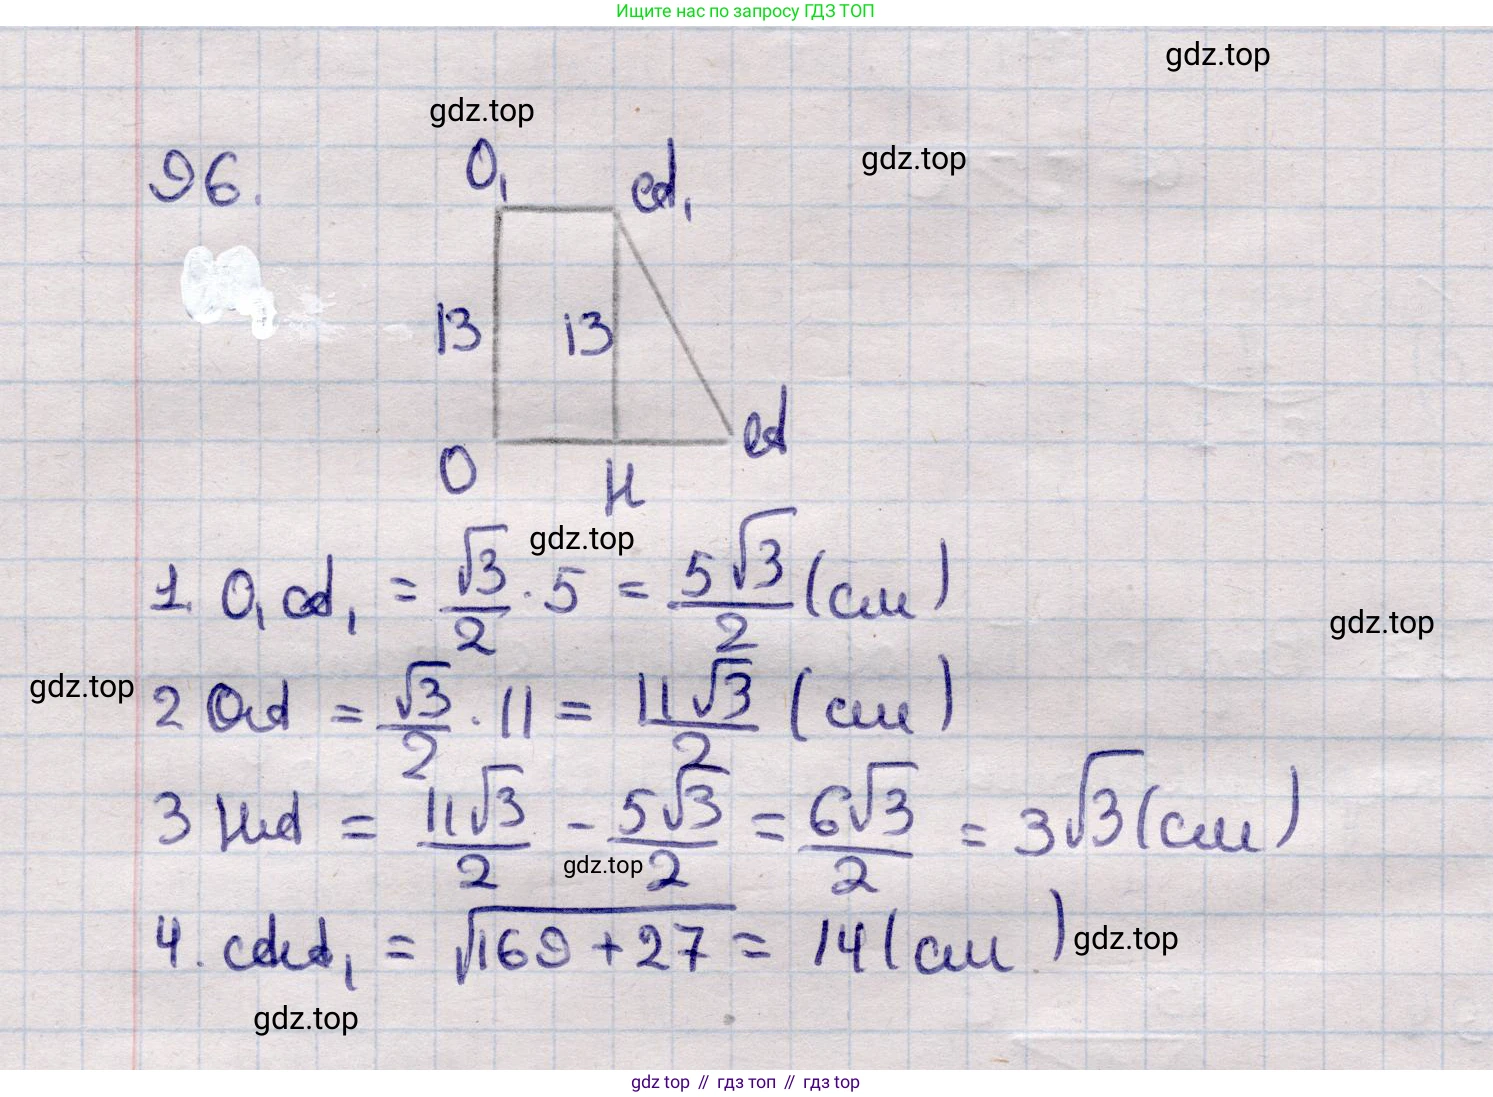 Ищите нас по запросу ГДЗ ТОП
gdz.top
gdz.top
gdz.top
96.
O₁ M₁
13 13
O H M
gdz.top
1. O₁M₁ = √3/2 · 5 = 5√3/2 (см)
gdz.top
gdz.top
2 OM = √3/2 · 11 = 11√3/2 (см)
3 HM = 11√3/2 - 5√3/2 = 6√3/2 = 3√3 (см)
gdz.top
4. MM₁ = √169 + 27 = 14 (см)
gdz.top
gdz.top
gdz top // гдз топ // гдз top